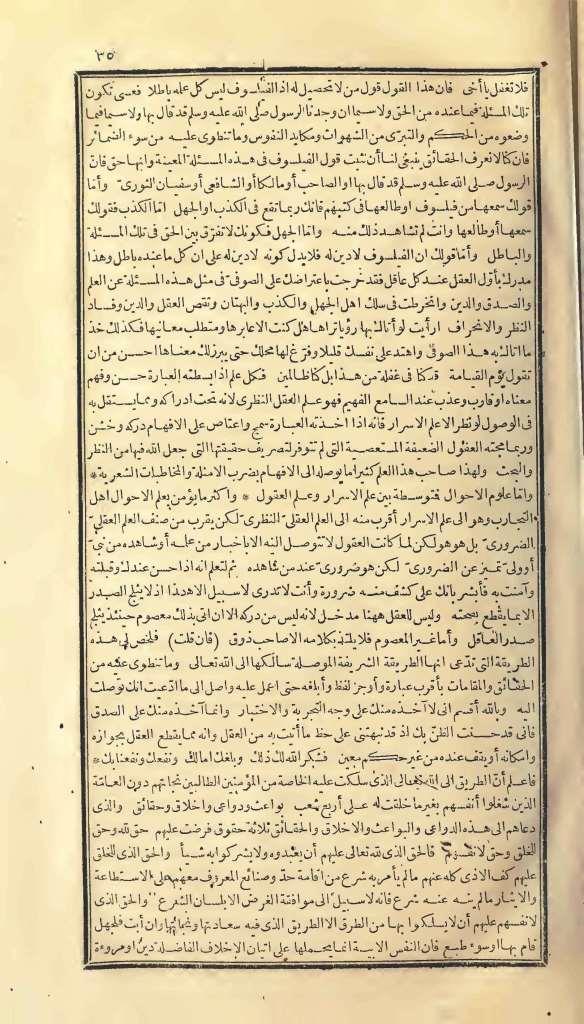 ٣٥
فلا تغفل يا أخى فان هذا القول قول من لا تحصيل له اذ الفيلسوف ليس كل علمه باطلا فعسى تكون
تلك المسئلة فيما عنده من الحق ولا سيما ان وجدنا الرسول صلى الله عليه وسلم قد قال بها ولا سيما فيما
وضعوه من الحكم والتبرى من الشهوات ومكايد النفوس وما تنطوى عليه من سوء الضمائر
فان كنا لا نعرف الحقائق ينبغى لنا أن نثبت قول الفيلسوف فى هذه المسئلة المعينة وانها حق فان
الرسول صلى الله عليه وسلم قد قال بها او الصاحب أو مالكا أو الشافعى أو سفيان الثورى وأما
قولك سمعها من فيلسوف أو طالعها فى كتبهم فانك ربما تقع فى الكذب والجهل امّا الكذب فقولك
سمعها أو طالعها وانت لم تشاهد ذلك منه وامّا الجهل فكونك لا تفرق بين الحق فى تلك المسئلة
والباطل وأما قولك ان الفيلسوف لا دين له فلا يدل كونه لا دين له على ان كل ما عنده باطل وهذا
مدرك بأوّل العقل عند كل عاقل فقد خرجت باعتراضك على الصوفى فى مثل هذه المسئلة عن العلم
والصدق والدين وانخرطت فى سلك اهل الجهل والكذب والبهتان ونقص العقل والدين وفساد
النظر والانحراف ارأيت لو أتاك بها رؤيا رآها هل كنت الا عابرها ومتطلب معانيها فكذلك خذ
ما اتاك به هذا الصوفى واهتد على نفسك قليلا وفرّغ لها محلك حتى يبرز لك معناها احسن من ان
تقول يوم القيامة قد كنا فى غفلة من هذا بل كنا ظالمين فكل علم اذا بسطته العبارة حسن وفهم
معناه او قارب وعذب عند السامع الفهيم فهو علم العقل النظرى لانه تحت ادراكه ومما يستقل به
فى الوصول لو نظر الا علم الاسرار فانه اذا اخذته العبارة سمج واعتاص على الافهام دركه وخشن
وربما مجته العقول الضعيفة المتعصبة التى لم تتوفر لتصريف حقيقتها التى جعل الله فيها من النظر
والبحث ولهذا صاحب هذا العلم كثيرا ما يوصله الى الافهام بضرب الامثلة والمخاطبات الشعرية *
وأمّا علوم الاحوال فمتوسطة بين علم الاسرار وعلم العقول * واكثر ما يؤمن بعلم الاحوال اهل
التجارب وهو الى علم الاسرار أقرب منه الى العلم العقلىّ النظرى لكن يقرب من صنف العلم العقلىّ
الضرورى بل هو هو لكن لما كانت العقول لا تتوصل اليه الا باخبار من علمه أو شاهده من نبىّ
أو ولىّ تميز عن الضرورىّ لكن هو ضرورىّ عند من شاهده ثم لتعلم انه اذا حسن عندك وقبلته
وآمنت به فأبشر بانك على كشف منه ضرورة وأنت لا تدرى لا سبيل الا هذا اذ لا يثلج الصدر
الا بما يقطع بصحته وليس للعقل ههنا مدخل لانه ليس من دركه الا ان اتى بذلك معصوم حينئذ يثلج
صدر العاقل وأما غير المعصوم فلا يلتذ بكلامه الا صاحب ذوق (فان قلت) فلخص لى هذه
الطريقة التى تدّعى انها الطريقة الشريفة الموصلة سالكها الى الله تعالى وما تنطوى عليه من
الحقائق والمقامات بأقرب عبارة وأوجز لفظ وأبلغه حتى اعمل عليه واصل الى ما ادّعيت انك توصلت
اليه وبالله أقسم انى لا آخذه منك على وجه التجربة والاختبار وانما آخذه منك على الصدق
فانى قد حسنت الظنّ بك اذ قد نبهتنى على حظ ما أتيت به من العقل وانه مما يقطع العقل بجوازه
وامكانه أو يقف عنده من غير حكم معين فشكر الله لك ذلك وبلغك آمالك ونفعك ونفعنا بك *
فاعلم أنّ الطريق الى الله تعالى الذى سلكت عليه الخاصة من المؤمنين الطالبين نجاتهم دون العامّة
الذين شغلوا أنفسهم بغير ما خلقت له على أربع شعب بواعث ودواعى وأخلاق وحقائق والذى
دعاهم الى هذه الدواعى والبواعث والاخلاق والحقائق ثلاثة حقوق فرضت عليهم حق لله وحق
للخلق وحق لانفسهم فالحق الذى لله تعالى عليهم أن يعبدوه ولا يشركوا به شيأ والحق الذى للخلق
عليهم كف الاذى كله عنهم ما لم يأمر به شرع من اقامة حدّ وصنائع المعروف معهم على الاستطاعة
والايثار ما لم ينه عنه شرع فانه لا سبيل الى موافقة الغرض الا بلسان الشرع والحق الذى
لانفسهم عليهم أن لا يسلكوا بها من الطرق الا الطريق الذى فيه سعادتها ونجاتها وان أبت فلجهل
قام بها أو سوء طبع فان النفس الابية انما يحملها على اتيان الاخلاق الفاضلة دين أو مروءة